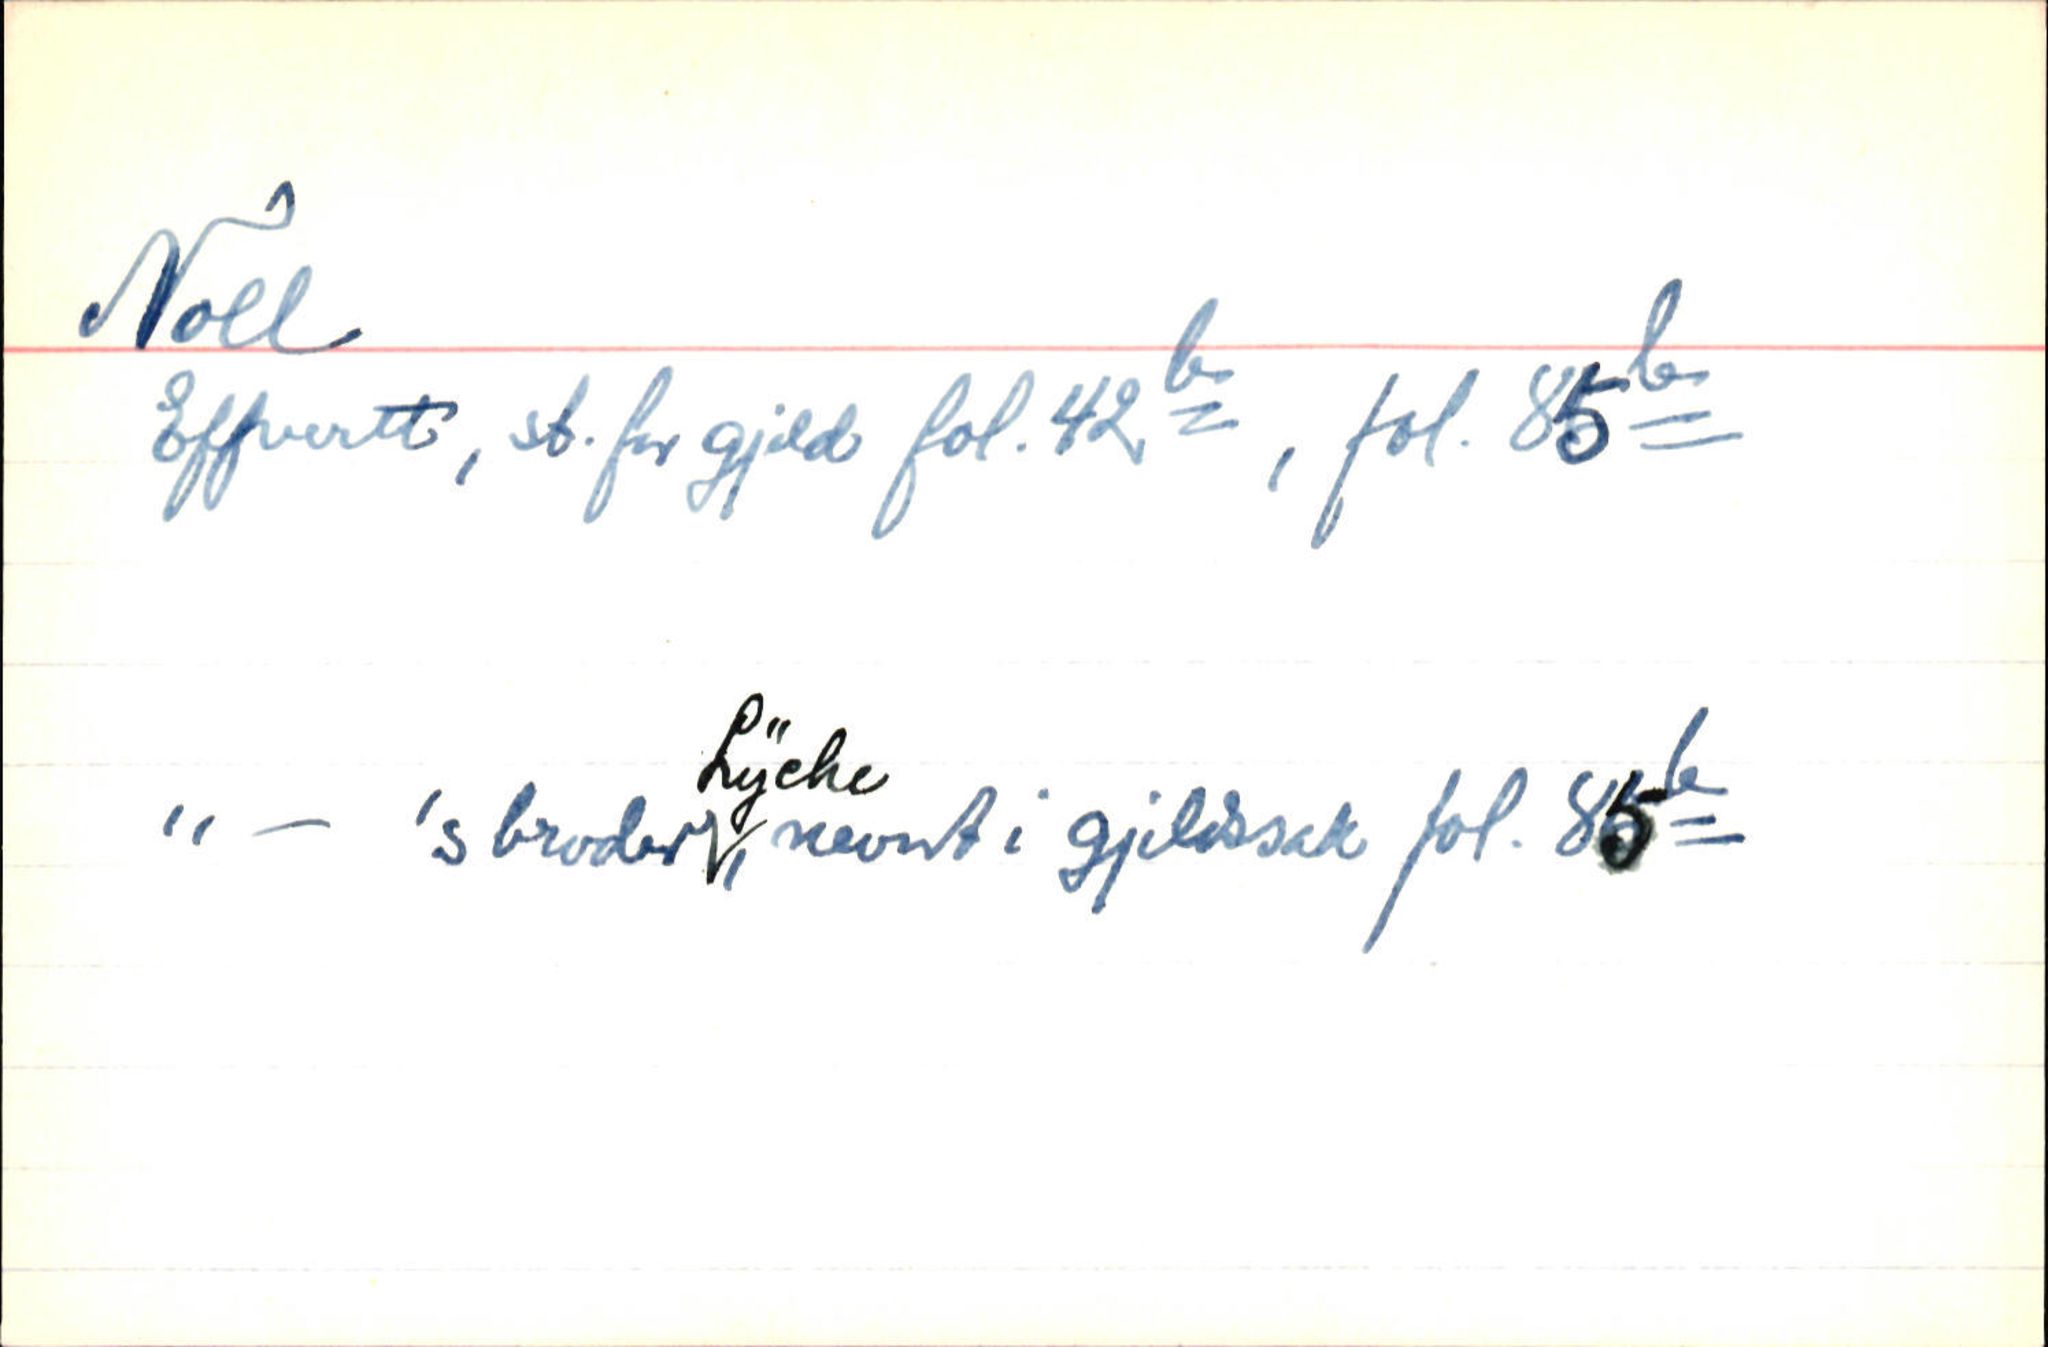 Noll
Effvertt, st. for gjeld fol. 42b, fol. 85b
Lÿche
" — 's broder, nevnt i gjeldssak fol. 85b